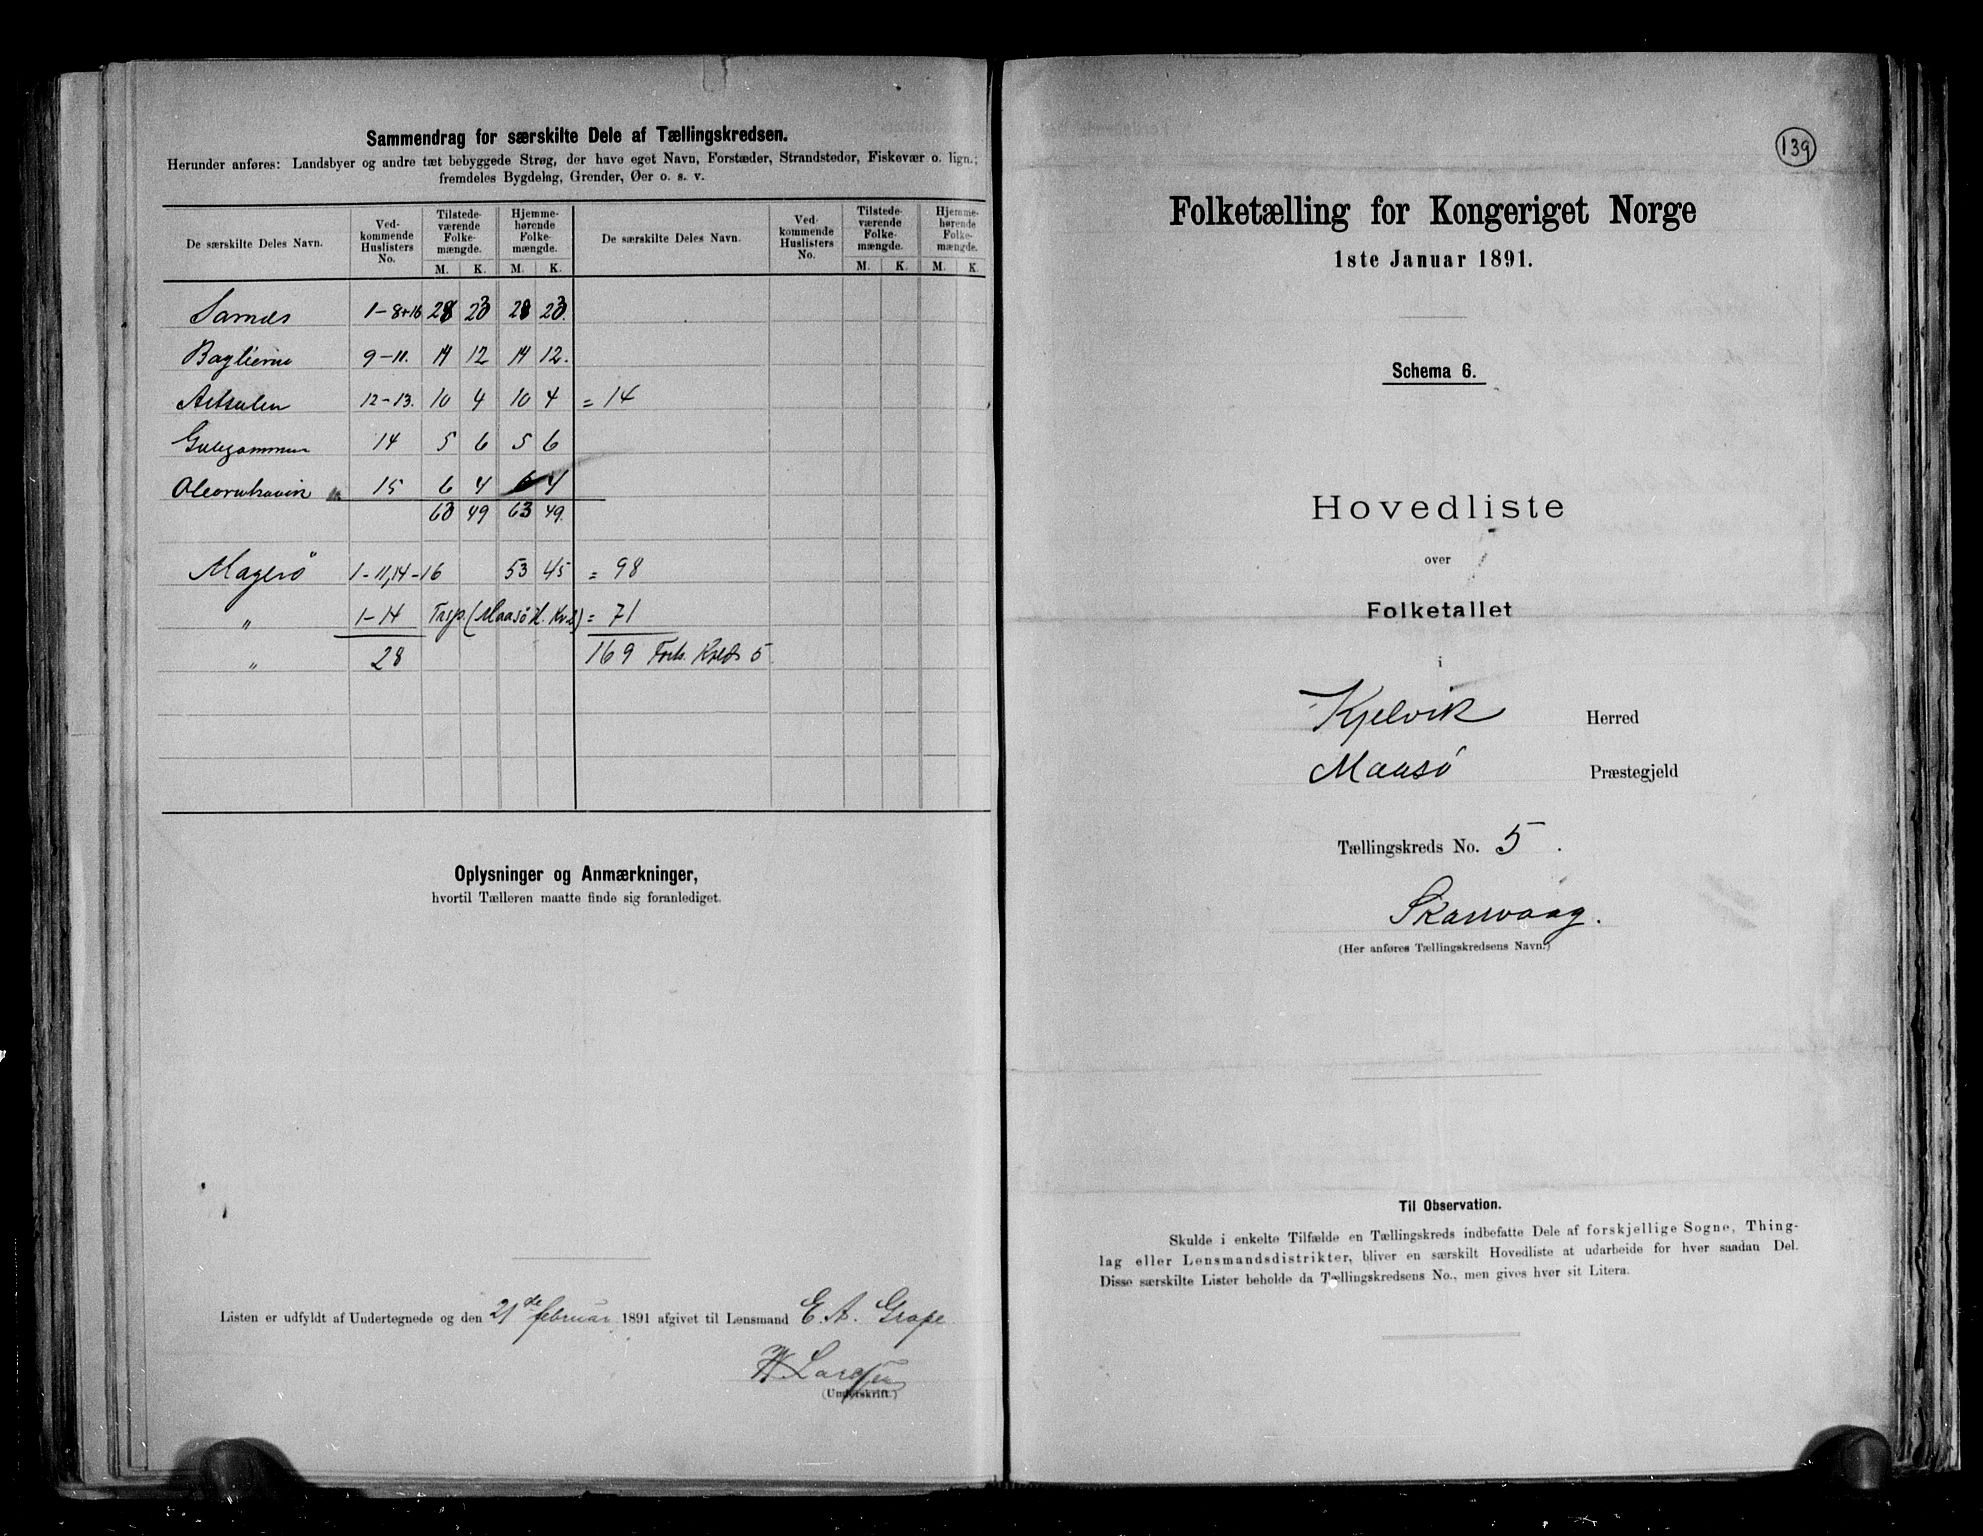 Sammendrag for særskilte Dele af Tællingskredsen.
Herunder anføres: Landsbyer og andre tæt bebyggede Strøg, der have eget Navn, Forstæder, Strandsteder, Fiskevær o. lign.;
fremdeles Bygdelag, Grender, Øer o. s. v.
De særskilte Deles Navn. Ved-kommende Huslisters No. Tilstede-værende Folke-mængde. Hjemme-hørende Folke-mængde. De særskilte Deles Navn. Ved-kommende Huslisters No. Tilstede-værende Folke-mængde. Hjemme-hørende Folke-mængde.
M. K. M. K. M. K. M. K.
Sarnæs 1-8+16 28 23 28 23.
9-11. 14 12 14 12.
12-13. 10 4 10 4 = 14
14 5 6 5 6
15 6 4 6 4
63 49 63 49.
Magerö 1-11,14-16 53 45 = 98
" 1-14 Trsp. (Maasö H. Kr. 2) = 71
" 28 169 Forts. Kreds 5
Oplysninger og Anmærkninger,
hvortil Tælleren maatte finde sig foranlediget.
Listen er udfyldt af Undertegnede og den 21de februar 1891 afgivet til Lensmand E. A. Grape
H Larssen
(Underskrift.)
139
Folketælling for Kongeriget Norge
1ste Januar 1891.
Schema 6.
Hovedliste
over
Folketallet
i
Kjelvik Herred
Maasø Præstegjeld
Tællingskreds No. 5.
Skarsvaag.
(Her anføres Tællingskredsens Navn.)
Til Observation.
Skulde i enkelte Tilfælde en Tællingskreds indbefatte Dele af forskjellige Sogne, Thing-
lag eller Lensmandsdistrikter, bliver en særskilt Hovedliste at udarbeide for hver saadan Del.
Disse særskilte Lister beholde da Tællingskredsens No., men gives hver sit Litera.